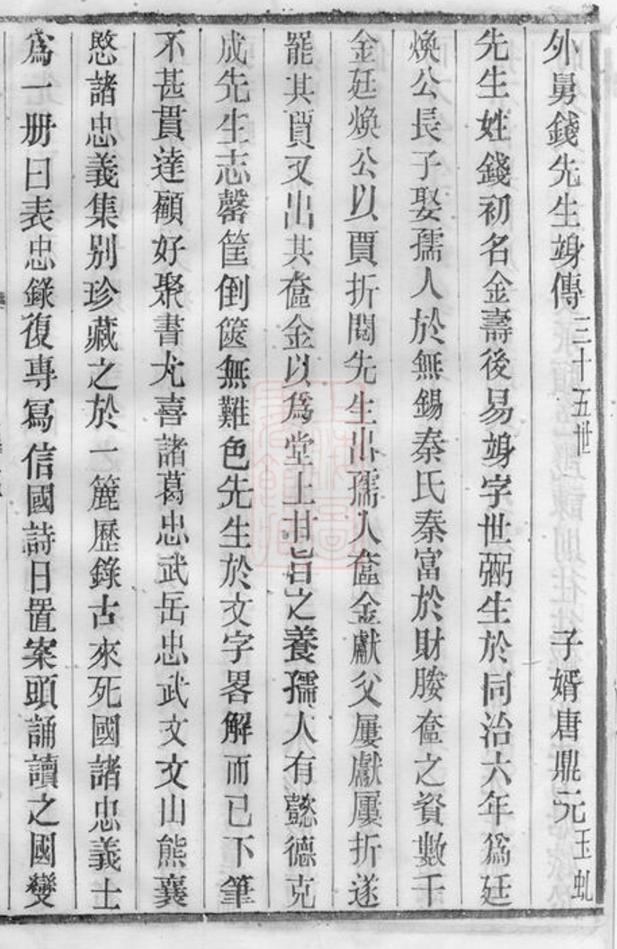 外舅錢先生竧傳三十五世 子婿唐鼎元玉虬
先生姓錢初名金壽後易竧字世弼生於同治六年爲廷
煥公長子娶孺人於無錫秦氏秦富於財媵奩之資數千
金廷煥公以賈折閱先生出孺人奩金獻父屢獻屢折遂
罷其賈又出其奩金以爲堂上甘旨之養孺人有懿德克
成先生志罄筐倒篋無難色先生於文字畧解而已下筆
不甚貫達顧好聚書尤喜諸葛忠武岳忠武文文山熊襄
愍諸忠義集別珍藏之於一簏歷錄古來死國諸忠義士
爲一册曰表忠錄復專寫信國詩日置案頭誦讀之國變